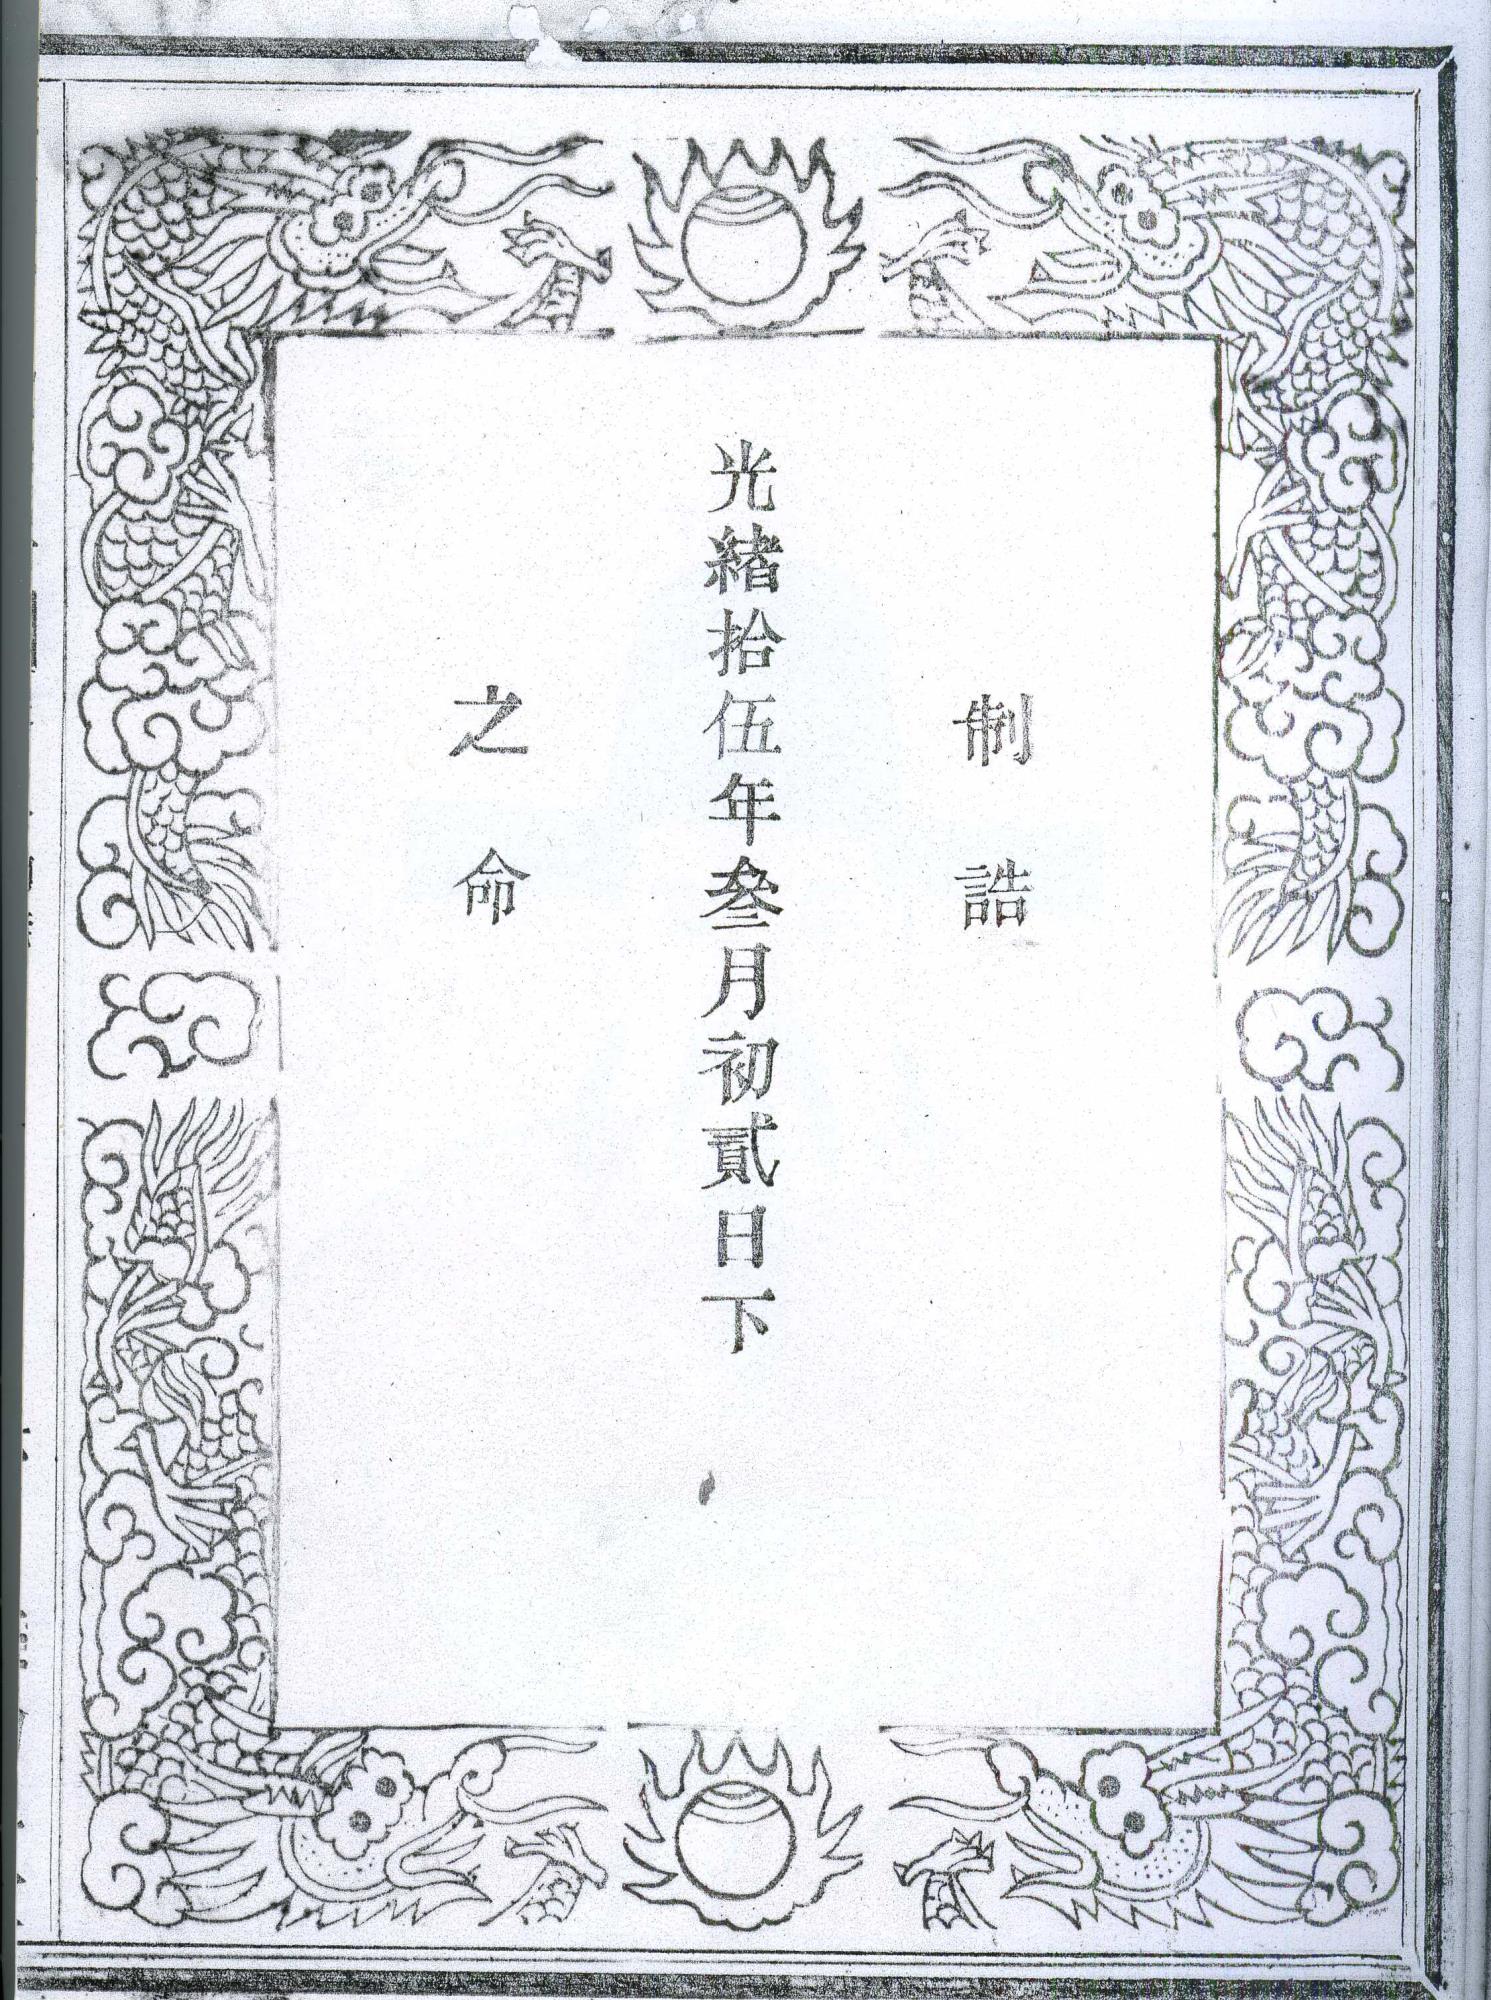 制誥
光緒拾伍年叄月初貳日下
之命